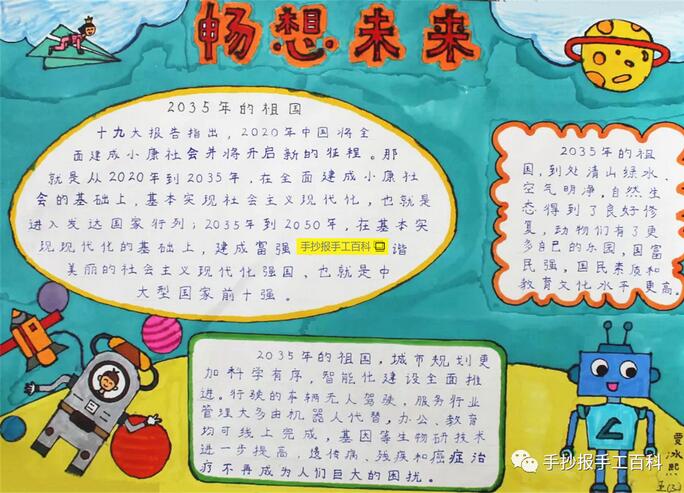 畅想未来
2035年的祖国
十九大报告指出，2020年中国将全
面建成小康社会并将开启新的征程。那
就是从2020年到2035年，在全面建成小康社
会的基础上，基本实现社会主义现代化，也就是
进入发达国家行列；2035年到2050年，在基本实
现现代化的基础上，建成富强 手抄报手工百科 谐
美丽的社会主义现代化强国、也就是中
大型国家前十强。
2035年的祖
国，到处清山绿水、
空气明净，自然生
态得到了良好修
复，动物们有了更
多自己的乐园，国富
民强，国民素质和
教育文化水平更高。
2035年的祖国，城市规划更
加科学有序，智能化建设全面推
进。行驶的车辆无人驾驶，服务行业
管理大多由机器人代替，办公、教育
均可线上完成，基因等生物研技术
进一步提高，遗传病、残疾和癌症治
疗不再成为人们巨大的困扰。
贾冰熙
五(3)
手抄报手工百科